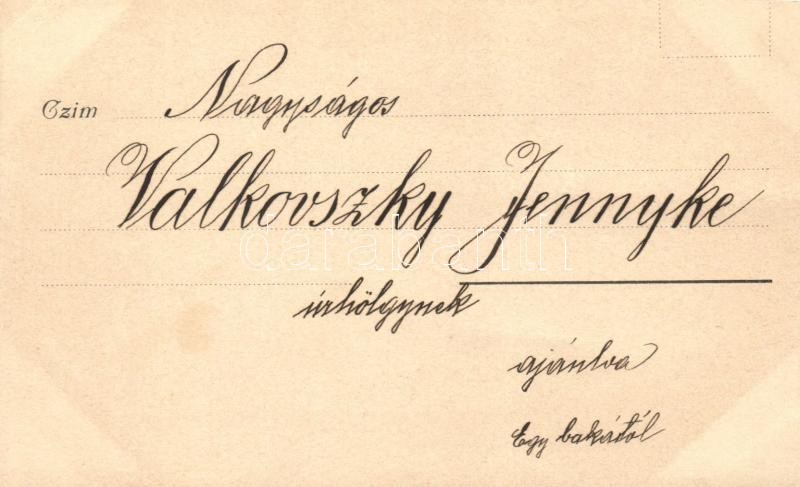 Czim Nagyságos
Valkovszky Jennyke
darabanth
úrhölgynek
ajánlva
Egy bakától